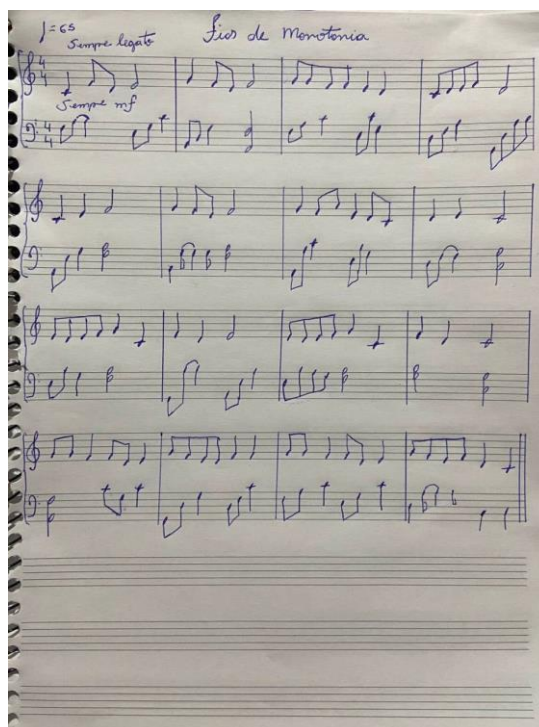 ♩=65
Sempre legato
Fios de Monotonia
4
4
Sempre mf
4
4